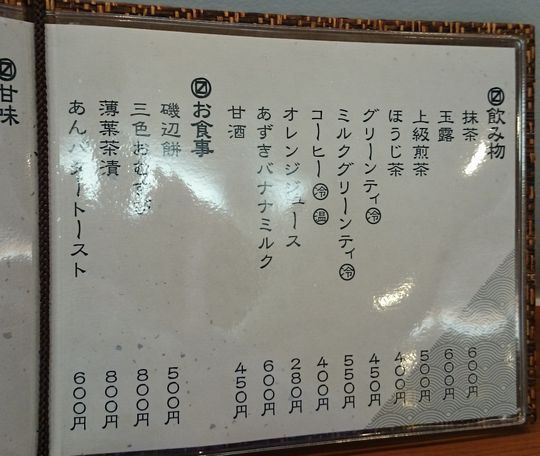 飲み物
抹茶 600円
玉露 600円
上級煎茶 500円
ほうじ茶 400円
グリーンティ冷 450円
ミルクグリーンティ冷 550円
コーヒー冷温 400円
オレンジジュース 280円
あずきバナナミルク 600円
甘酒 450円
お食事
磯辺餅 500円
三色おむすび 800円
薄葉茶漬 800円
あんバタートースト 600円
甘味